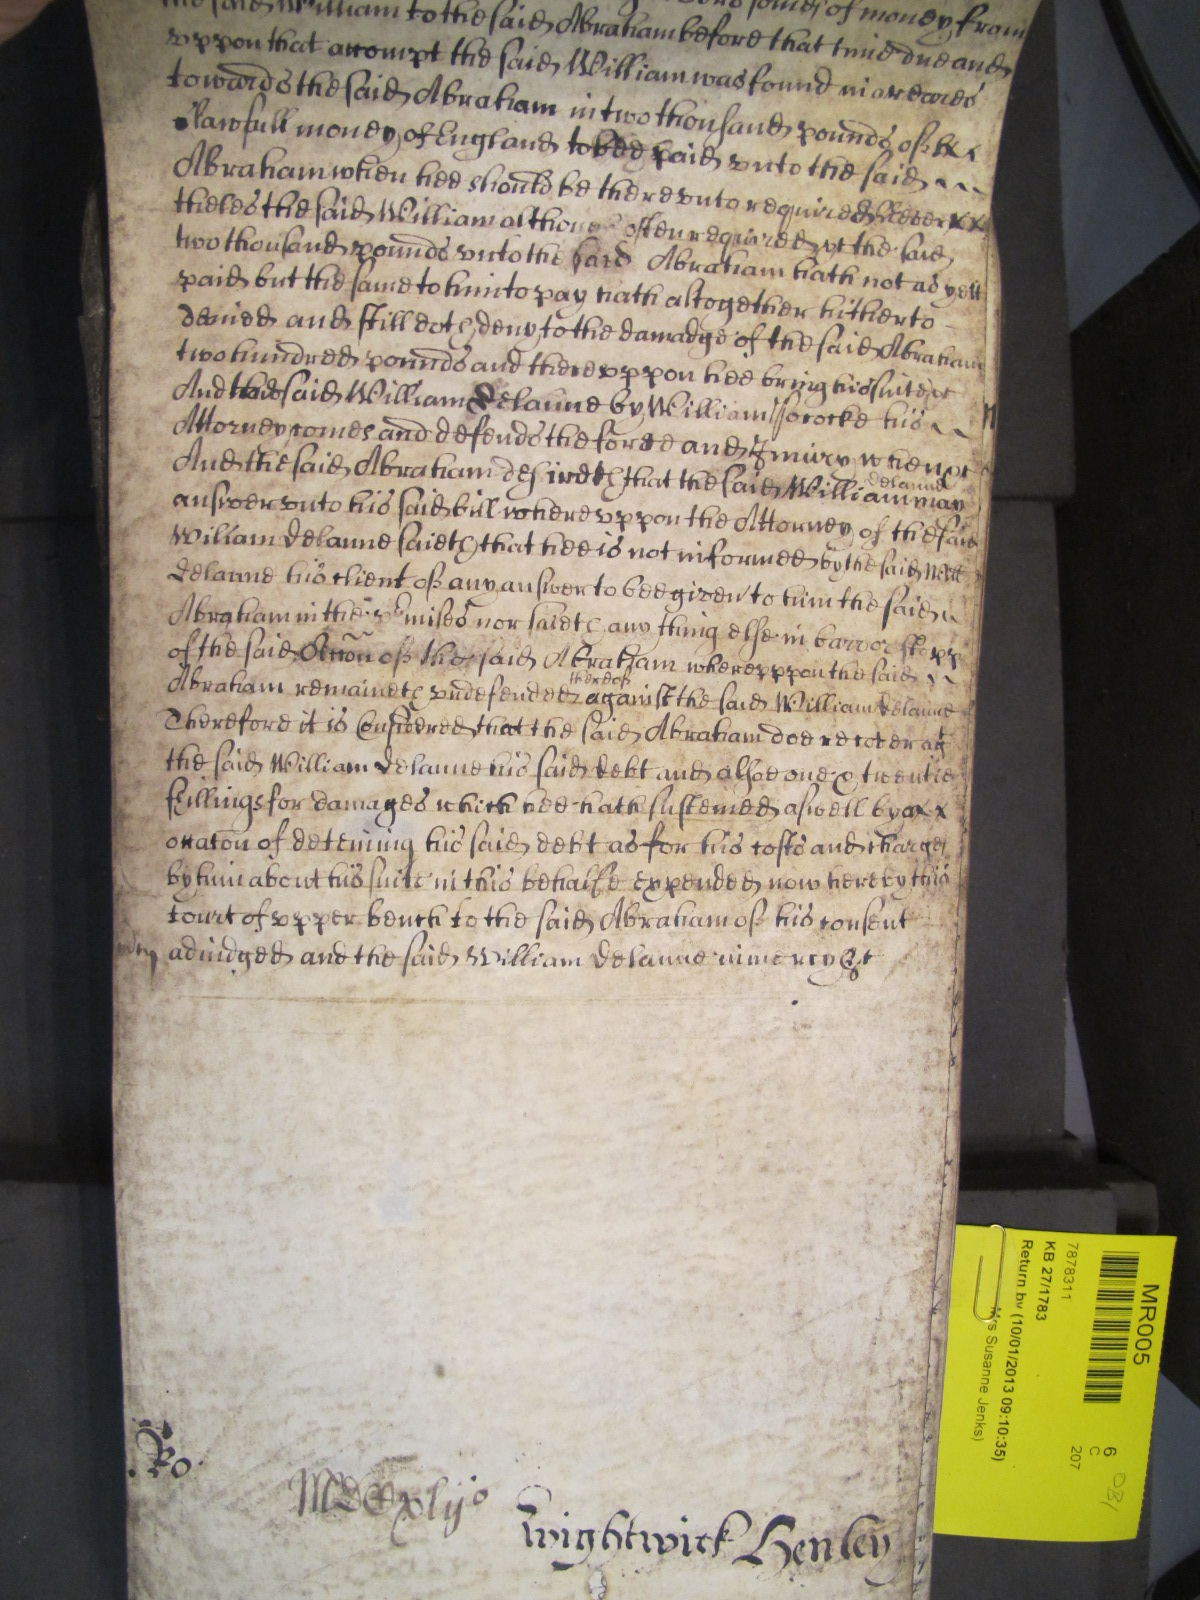 the said William to the said Abraham before that time due and
uppon that accompt the said William was found in arreares
towards the said Abraham in two thousand pounds of
lawfull money of England to bee paid unto the said
Abraham when hee should be thereunto required Never
theles the said William although often required yet the said
two thousand pounds unto the said Abraham hath not as yett
paid but the same to him to pay hath altogether hitherto
denied and still doth deny to the damadge of the said Abraham
two hundred pounds and thereuppon hee bring his suite &c
And the said William Delaune by William his
Attorney comes and defends the force and Iniury when &c
And the said Abraham desireth that the said William delaune may
answer unto his said bill whereuppon the Attorney of the said
William Delaune saieth that hee is not informed by the said Will
Delaune his client of any answer to bee given to him the said
Abraham in the p'mises nor saieth any thing else in barr or stopp
of the said Accon of the said Abraham whereuppon the said
Abraham remaineth undefended thereof against the said William Delaune
Therefore it is Considered that the said Abraham doe recover ag
the said William Delaune his said debt and alsoe one & twentie
shillings for damages which hee hath susteined aswell by
occacon of deteining his said debt as for his costs and charges
by him about his suite in this behalfe expended now here by this
court of upper bench to the said Abraham of his consent
adiudged and the said William Delaune in mercy &c
Ro.
Wightwick Henley
MR005
7878311
KB 27/1783
Return by (10/01/2013 09:10:35)
Mrs Susanne Jenks)
6
C
207